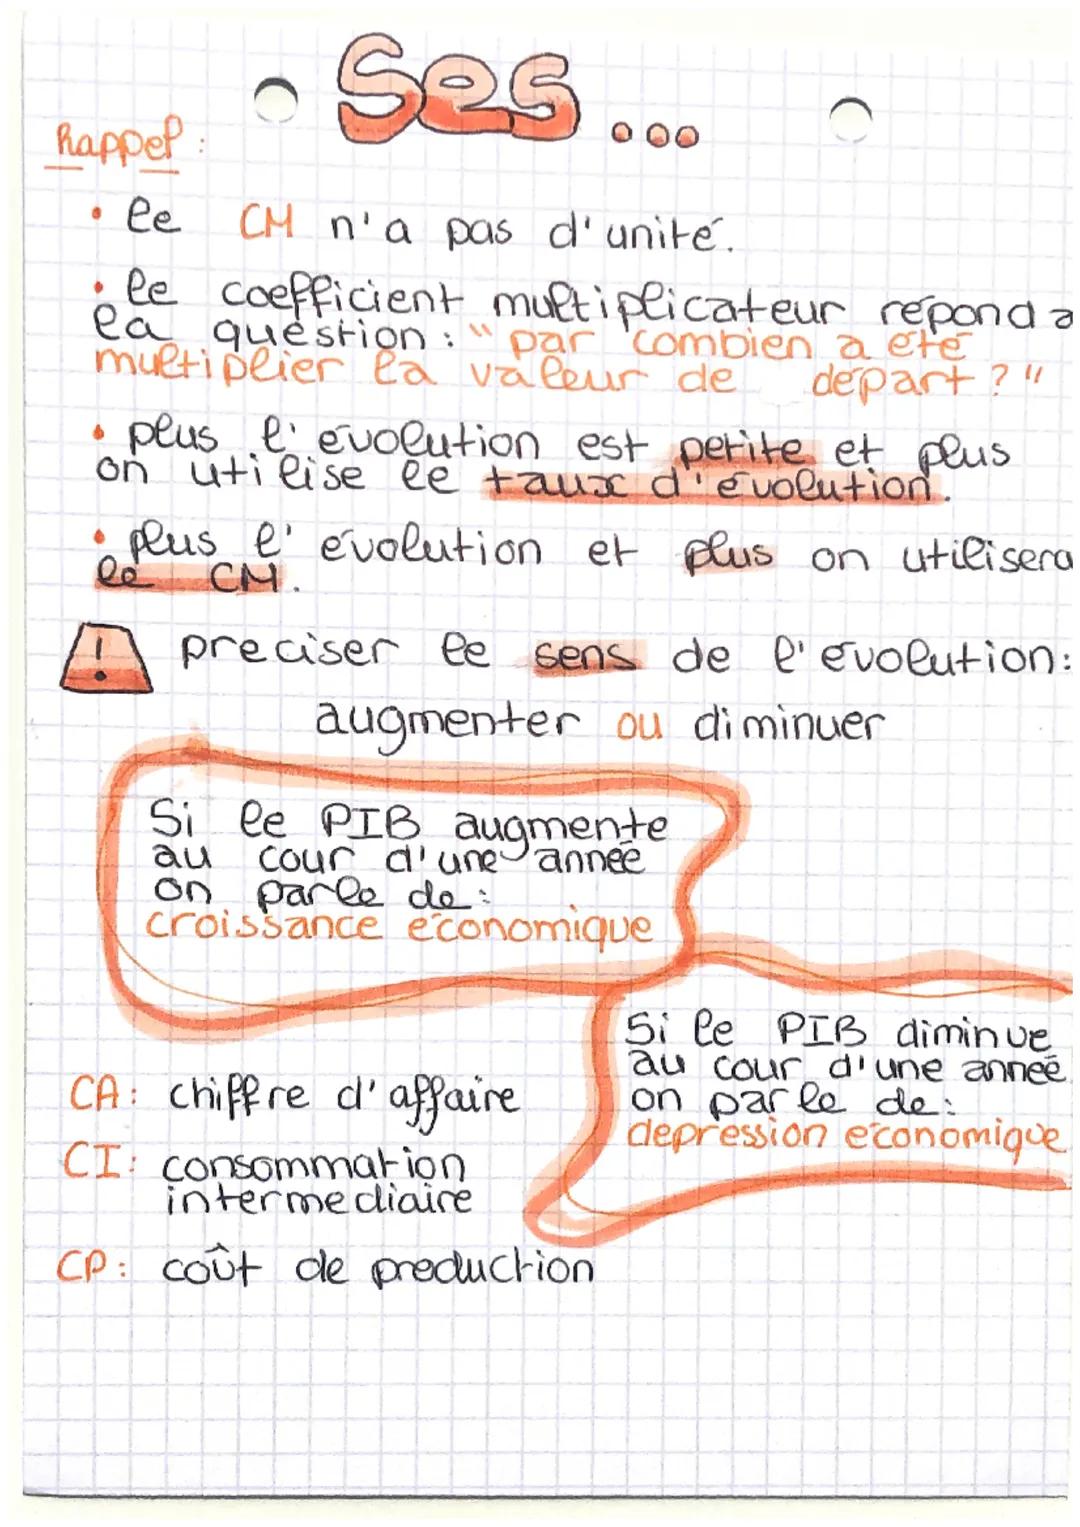 Ses...
Rappel :
• le CM n'a pas d'unité.
• le coefficient multiplicateur répond a
la question : "par combien a été
multiplier la valeur de départ ?"
• plus l'évolution est petite et plus
on utilise le taux d'évolution.
• plus l'évolution et plus on utilisera
le CM.
! preciser le sens de l'évolution:
augmenter ou diminuer
Si le PIB augmente
au cour d'une année
on parle de :
croissance économique
Si le PIB diminue
au cour d'une année
on parle de :
depression économique
CA : chiffre d'affaire
CI : consommation
intermediaire
CP : coût de preduction